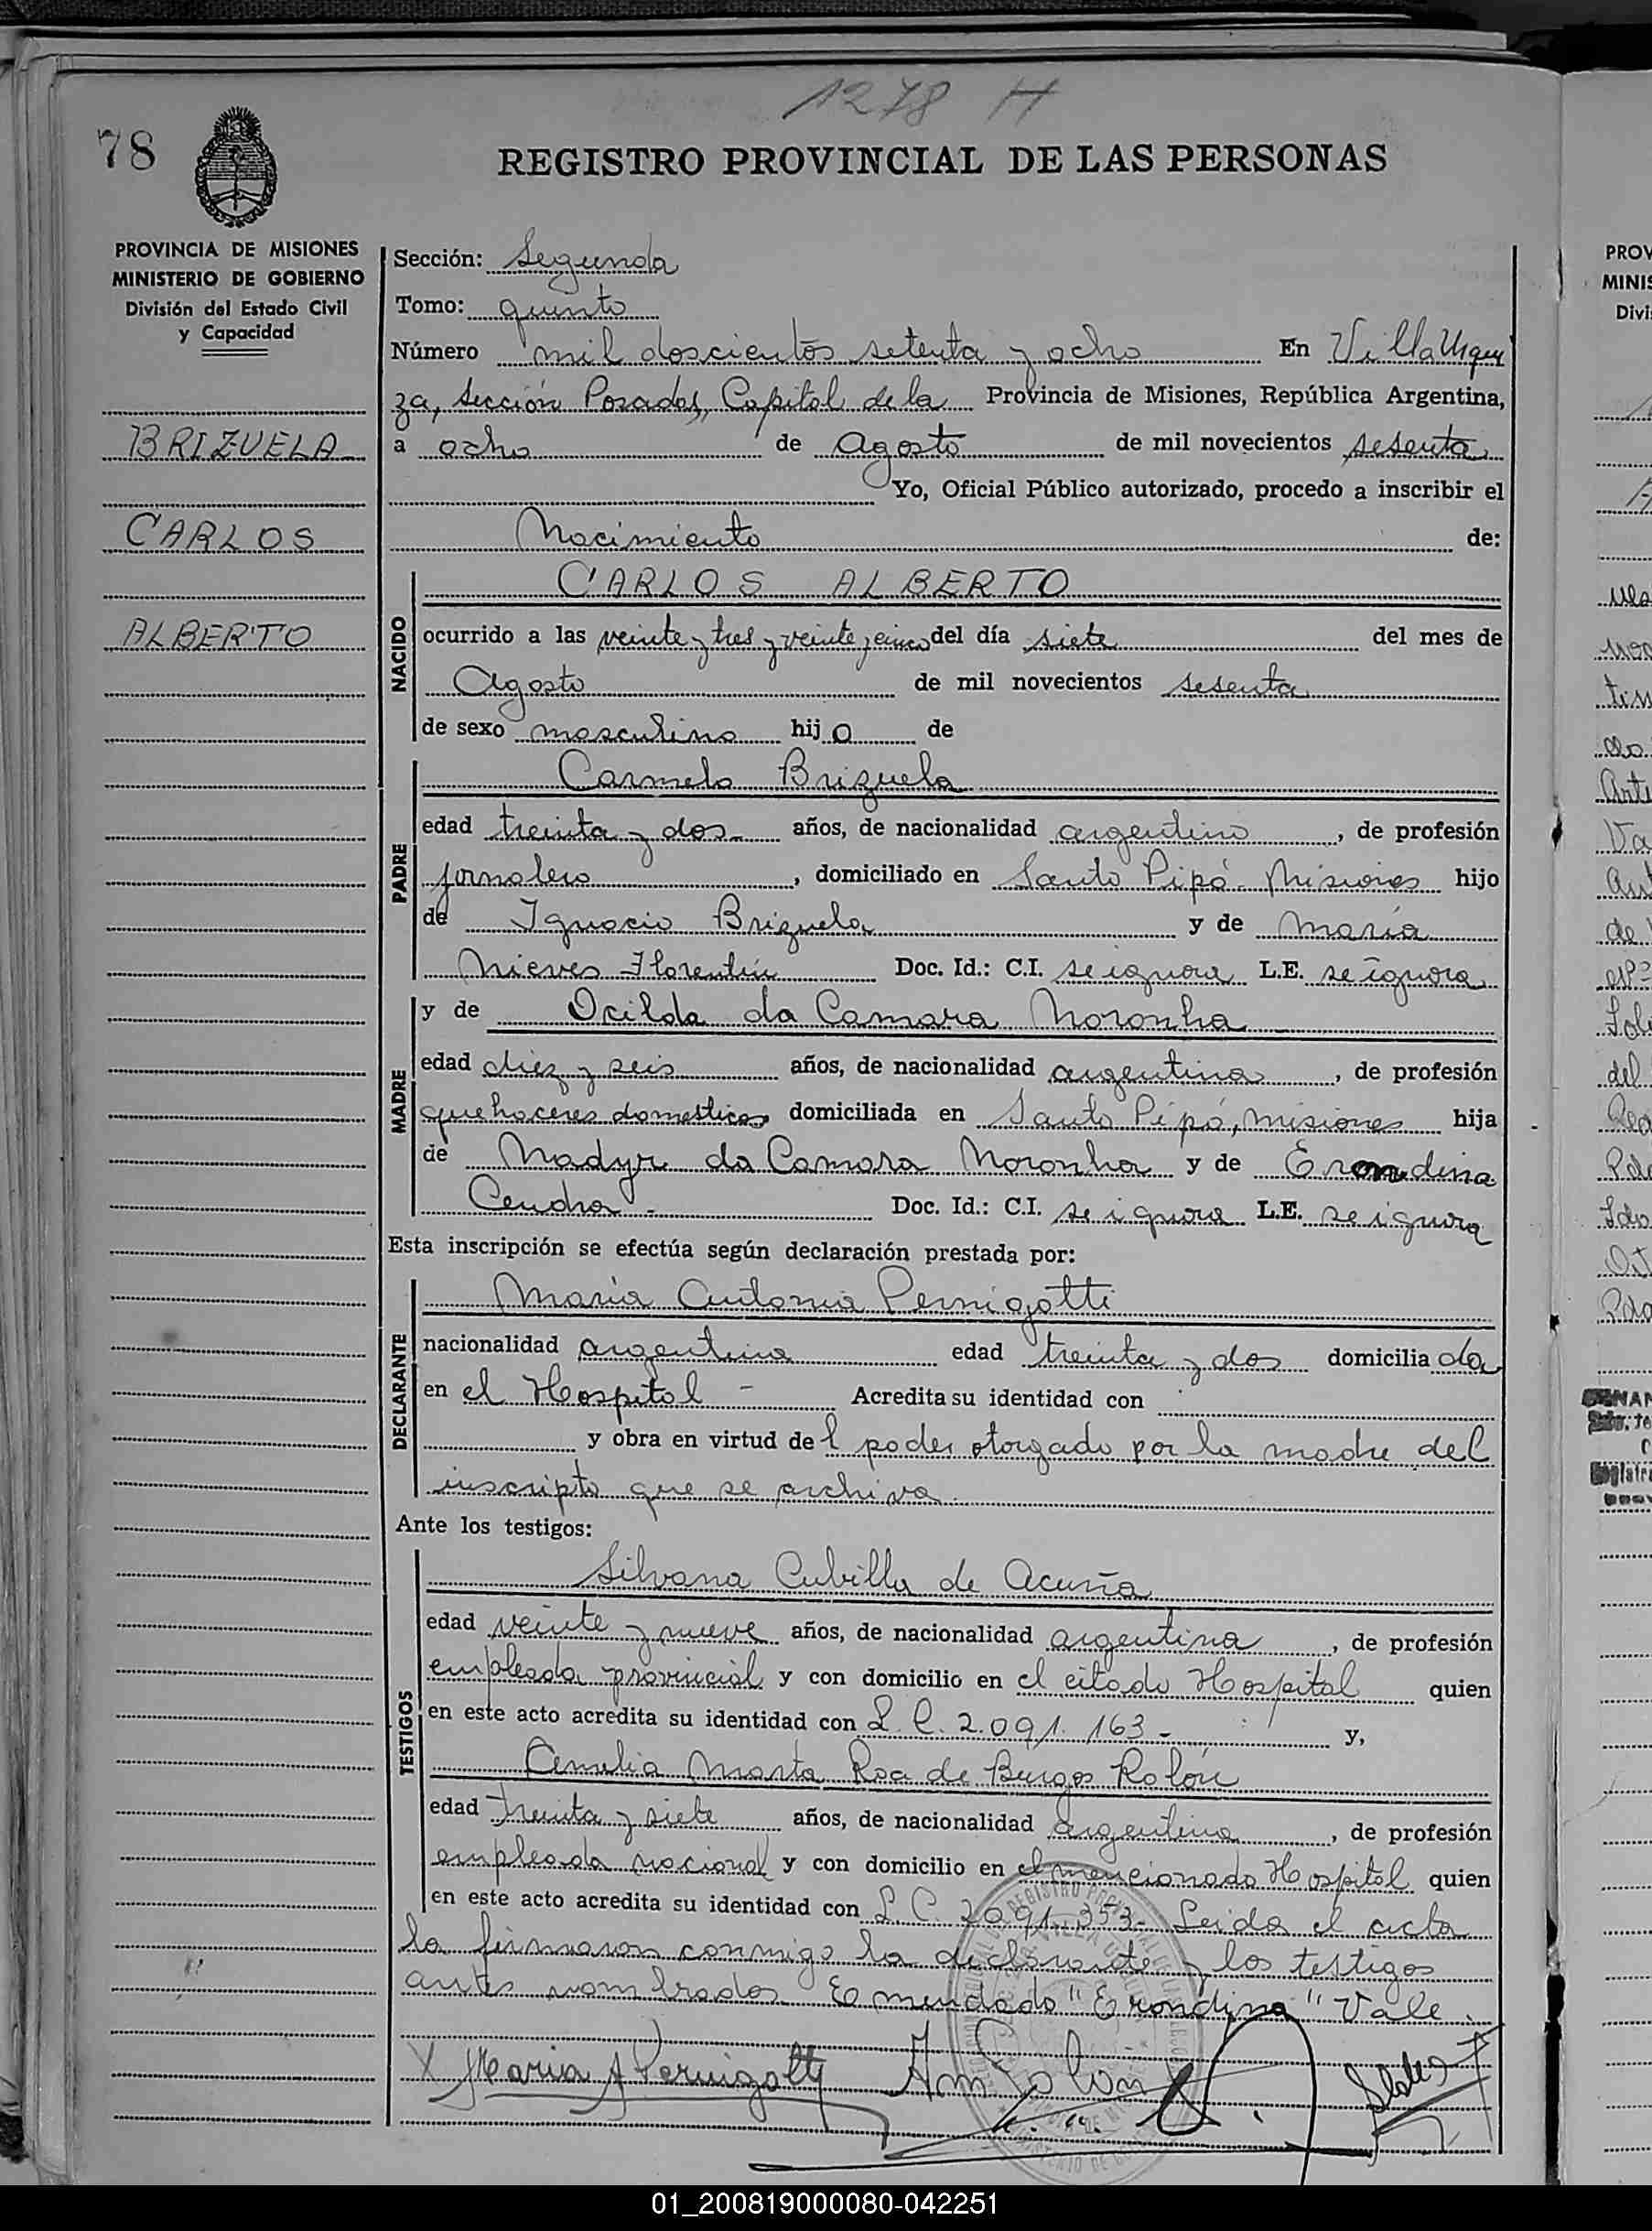 1278 H
78
REGISTRO PROVINCIAL DE LAS PERSONAS
PROVINCIA DE MISIONES
MINISTERIO DE GOBIERNO
División del Estado Civil
y Capacidad
BRIZUELA
CARLOS
ALBERTO
Sección: Segunda
Tomo: quinto
Número mil doscientos setenta y ocho En Villa Urqui
za, Sección Posadas, Capital de la Provincia de Misiones, República Argentina,
a ocho de Agosto de mil novecientos sesenta
Yo, Oficial Público autorizado, procedo a inscribir el
Nacimiento de:
NACIDO
CARLOS ALBERTO
ocurrido a las veinte y tres y veinte y cinco del día siete del mes de
Agosto de mil novecientos sesenta
de sexo masculino hijo de
PADRE
Carmelo Brizuela
edad treinta y dos años, de nacionalidad argentino, de profesión
jornalero, domiciliado en Santo Pipó Misiones hijo
de Ignacio Brizuela y de María
Nieves Florentín Doc. Id.: C.I. se ignora L.E. se ignora
MADRE
y de Ocilda da Camara Noronha
edad diez y seis años, de nacionalidad argentina, de profesión
quehaceres domesticos domiciliada en Santo Pipó, Misiones hija
de Nadyr da Camara Noronha y de Erondina
Doc. Id.: C.I. se ignora L.E. se ignora
Esta inscripción se efectúa según declaración prestada por:
DECLARANTE
María Antonia Pernigotti
nacionalidad argentina edad treinta y dos domiciliada
en el Hospital - Acredita su identidad con
y obra en virtud del poder otorgado por la madre del
inscripto que se archiva.
Ante los testigos:
TESTIGOS
Silvana Cubilla de Acuña
edad veinte y nueve años, de nacionalidad argentina, de profesión
empleada provincial y con domicilio en el citado Hospital quien
en este acto acredita su identidad con L.C. 2.091.163 - y,
Amelia Marta Roa de Burgos Rolón
edad treinta y siete años, de nacionalidad argentina, de profesión
empleada nacional y con domicilio en el mencionado Hospital quien
en este acto acredita su identidad con L.C. 2091.353- Leida el acta
la firmaron conmigo la declarante y los testigos
antes nombrados Enmendado "Erondina" Vale.
Maria A Pernigotti
01_200819000080-042251